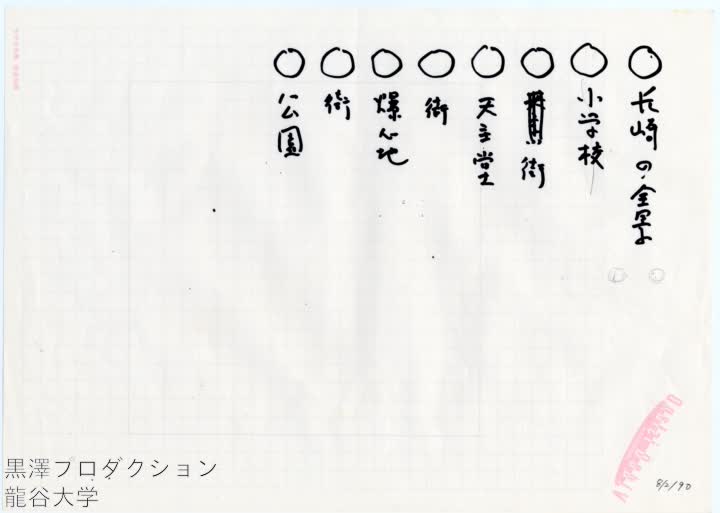 ○長崎の全景
○小学校
○街
○天主堂
○街
○爆心地
○街
○公園
8/2/90
黒澤プロダクション
龍谷大学